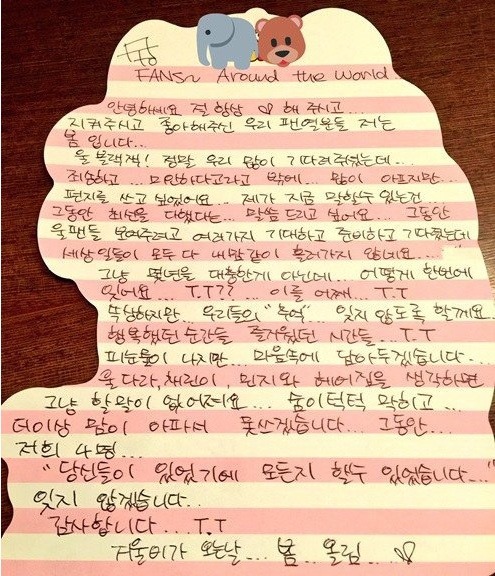 FANS~ Around the world
안녕하세요 절 항상 ♡ 해 주시고...
지켜주시고 좋아해주신 우리 팬열분들 저는
봄 입니다...
울 블랙잭! 정말 우리 많이 기다려줬는데...
죄송하고... 미안하다고라고 밖에... 많이 아프지만...
편지를 쓰고 싶었어요... 제가 지금 말할수 있는건
그동안 최선을 다했다는... 말씀 드리고 싶어요... 그동안
울팬들 보여주려고 여러가지 기대하고 준비하고 기다렸는데
세상일들이 모두 다 내맘같이 흘러가지 않네요...
그냥 몇년을 대충한게 아닌데... 어떻게 한번에
잊어요... T.T?? ... 이를 어째... T.T
속상하지만... 우리들의 "추억" 잊지 않도록 할께요...
행복했던 순간들 즐거웠던 시간들... T.T
피눈물이 나지만... 마음속에 담아두겠습니다...
울 다라, 채린이, 민지와 헤어짐을 생각하면
그냥 할말이 없어져요... 숨이턱턱 막히고...
더이상 맘이 아파서 못쓰겠습니다... 그동안...
저희 4명...
"당신들이 있었기에 모든지 할수 있었습니다..."
잊지 않겠습니다..
감사합니다... T.T
겨울비가 오는날... 봄.. 올림... ♡